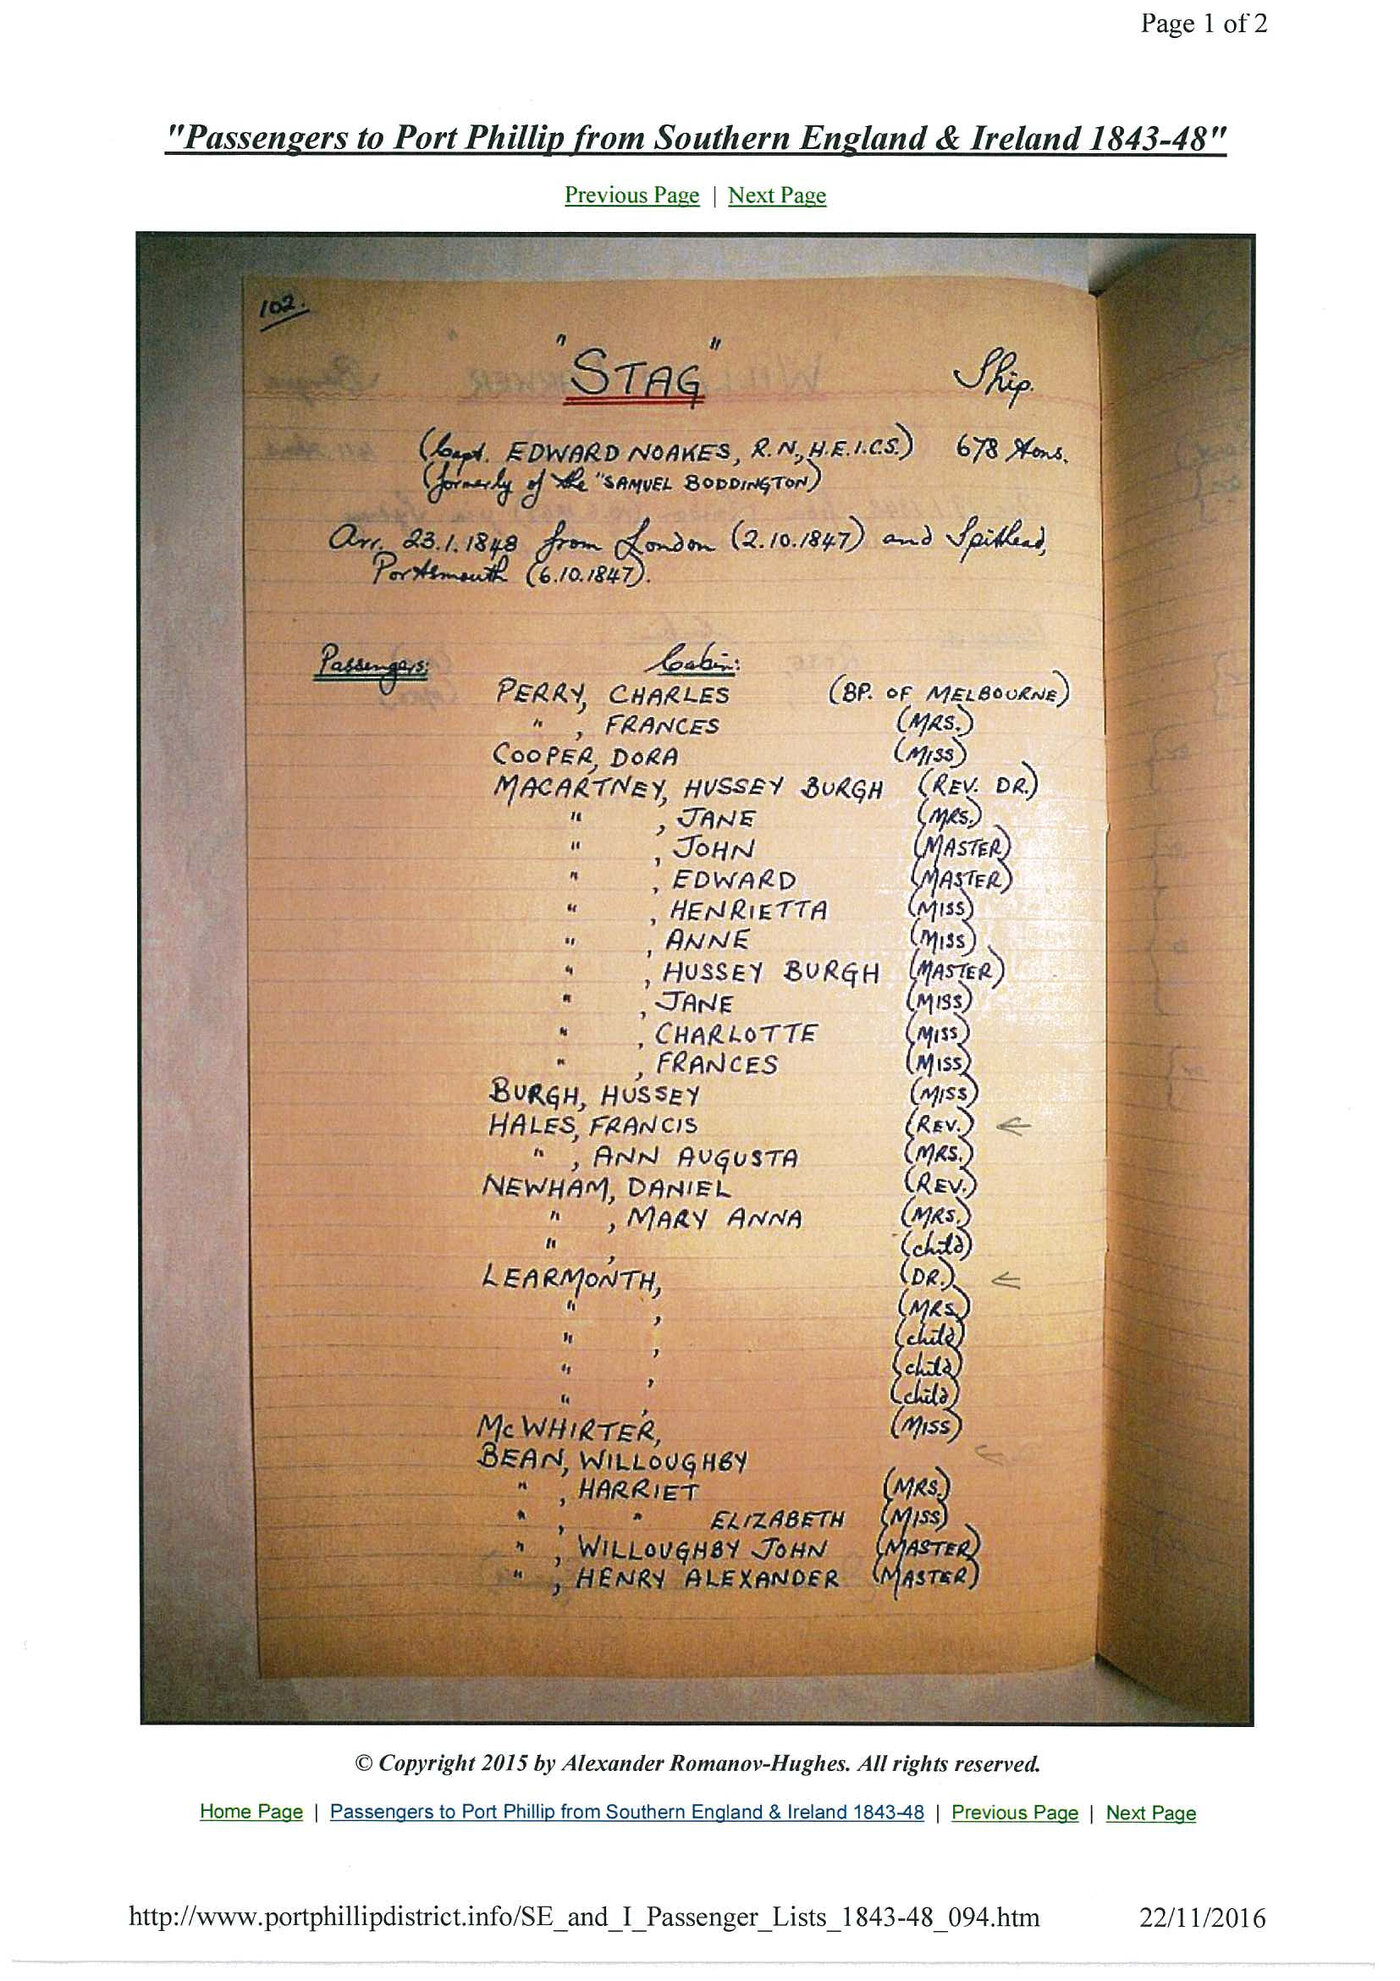 Page 1 of 2
"Passengers to Port Phillip from Southern England & Ireland 1843-48"
Previous Page | Next Page
102.
"STAG" Ship.
(Capt. EDWARD NOAKES, R.N., H.E.I.C.S.) 678 tons.
(formerly of the "SAMUEL BODDINGTON)
Arr. 23.1.1848 from London (2.10.1847) and Spithead,
Portsmouth (6.10.1847).
Passengers: Cabin:
PERRY, CHARLES (BP. OF MELBOURNE)
" , FRANCES (MRS.)
COOPER, DORA (MISS)
MACARTNEY, HUSSEY BURGH (REV. DR.)
" , JANE (MRS.)
" , JOHN (MASTER)
" , EDWARD (MASTER)
" , HENRIETTA (MISS)
" , ANNE (MISS)
" , HUSSEY BURGH (MASTER)
" , JANE (MISS)
" , CHARLOTTE (MISS)
" , FRANCES (MISS)
BURGH, HUSSEY (MISS)
HALES, FRANCIS (REV.) ←
" , ANN AUGUSTA (MRS.)
NEWHAM, DANIEL (REV.)
" , MARY ANNA (MRS.)
" , (child)
LEARMONTH, (DR.) ←
" , (MRS.)
" , (child)
" , (child)
" , (child)
McWHIRTER, (MISS)
BEAN, WILLOUGHBY ←
" , HARRIET (MRS.)
" , " ELIZABETH (MISS)
" , WILLOUGHBY JOHN (MASTER)
" , HENRY ALEXANDER (MASTER)
© Copyright 2015 by Alexander Romanov-Hughes. All rights reserved.
Home Page | Passengers to Port Phillip from Southern England & Ireland 1843-48 | Previous Page | Next Page
http://www.portphillipdistrict.info/SE_and_I_Passenger_Lists_1843-48_094.htm 22/11/2016